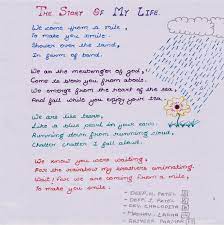 The Story Of My Life.
We come from a mile,
To make you smile.
Shower over the land,
In form of band.
We are the messenger of god,
Come to bless you from above.
We emerge from the heart of the sea,
And fall while you enjoy your tea.
We are like tears,
Like a blue pearl in your ears.
Running down from running cloud,
Chatter chatter I fall aloud.
We know you were waiting,
For the rainbow my brothers animating.
Wait! For we are coming from a mile,
To make you smile.
- DEEP. N. PATEL
- DEEP. J. PATEL
- DEV
- MADHAV
- RAJVEER PARMAR